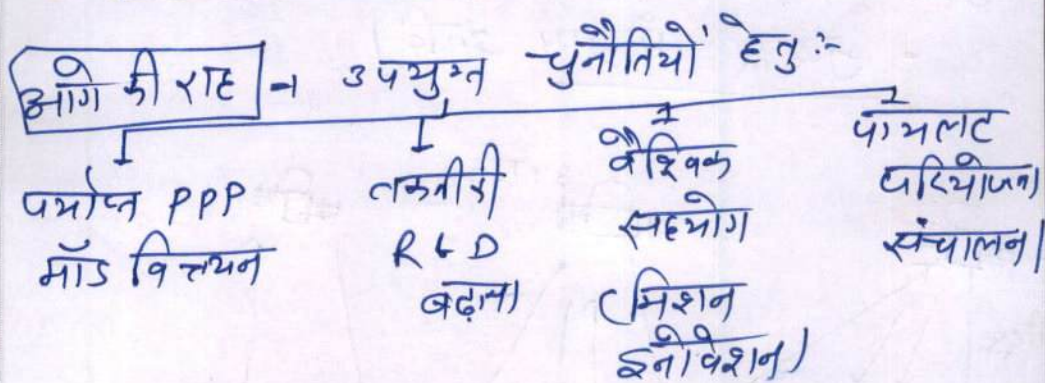 आगे की राह → उपर्युक्त चुनौतियों हेतु:-
पर्याप्त PPP
मॉड वित्तयन
तकनीकी
R & D
बढ़ाना
वैश्विक
सहयोग
(मिशन
इनोवेशन)
पायलट
परियोजना
संचालन।